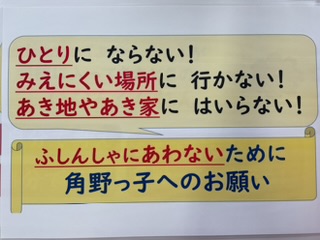 ひとりに ならない!
みえにくい場所に 行かない!
あき地やあき家に はいらない!
ふしんしゃにあわないために
角野っ子へのお願い